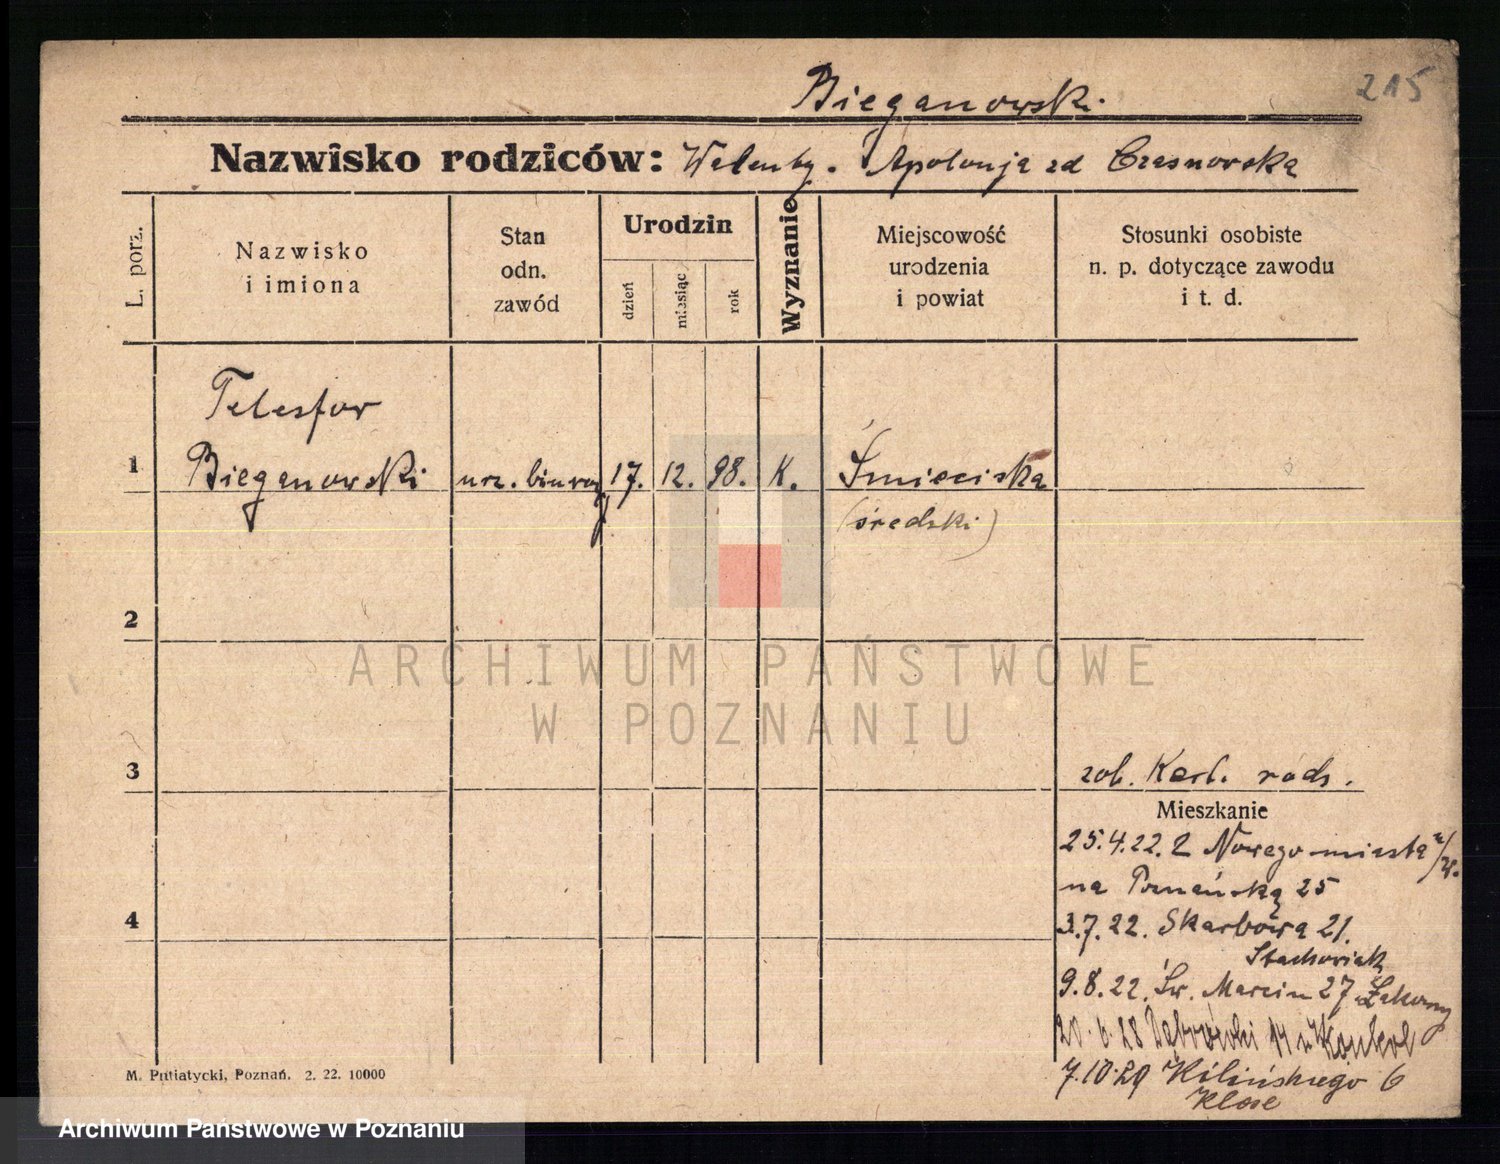 Bieganowski.
215
Nazwisko rodziców: Walenty. Apolonja zd Czesnorska
L. porz.
Nazwisko i imiona
Stan odn. zawód
Urodzin
dzień
miesiąc
rok
Wyznanie
Miejscowość urodzenia i powiat
Stosunki osobiste n. p. dotyczące zawodu i t. d.
Telesfor
1 Bieganowski urz. biurowy 17. 12. 98. K. Śnieciska
(średski)
2
ARCHIWUM PAŃSTWOWE
W POZNANIU
3 zob. Kart. rodz.
Mieszkanie
25.4.22. Z Nowego miasta n/W.
na Poznańską 25
4
3.7.22. Skarbowa 21.
Stachowiak
9.8.22. Św. Marcin 27
20.6.28 Dąbrowski 14
7.10.29 Kilińskiego 6
Klose
M. Putiatycki, Poznań. 2. 22. 10000
Archiwum Państwowe w Poznaniu